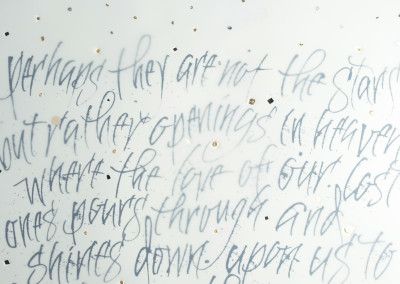 perhaps they are not the stars
but rather openings in heaven
where the love of our lost
ones pours through and
shines down upon us to